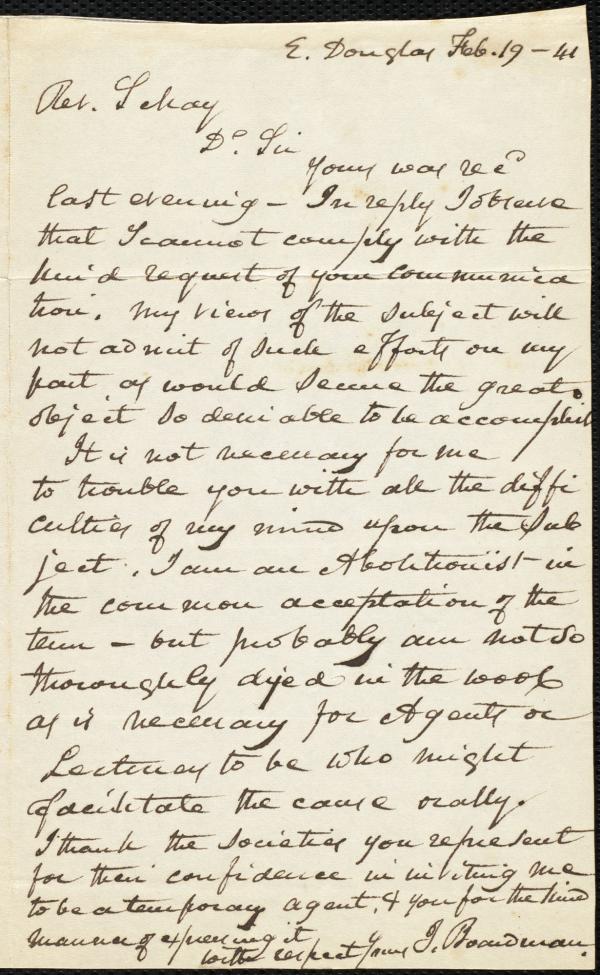 E. Douglas Feb. 19 - 41
Rev. S May
Dr. Sir
Yours was recd
last evening - In reply I observe
that I cannot comply with the
kind request of your communica
tion. My views of the subject will
not admit of such efforts on my
part as would secure the great
object so desirable to be accomplish
It is not necessary for me
to trouble you with all the diffi
culties of my mind upon the Sub
ject. I am an Abolitionist in
the common acceptation of the
term - but probably am not so
thoroughly dyed in the wool
as is necessary for Agents or
Lecturers to be who might
facilitate the cause orally.
I thank the societies you represent
for their confidence in inviting me
to be a temporary agent, & you for the kind
manner of expressing it
with respect yours J. Boardman.